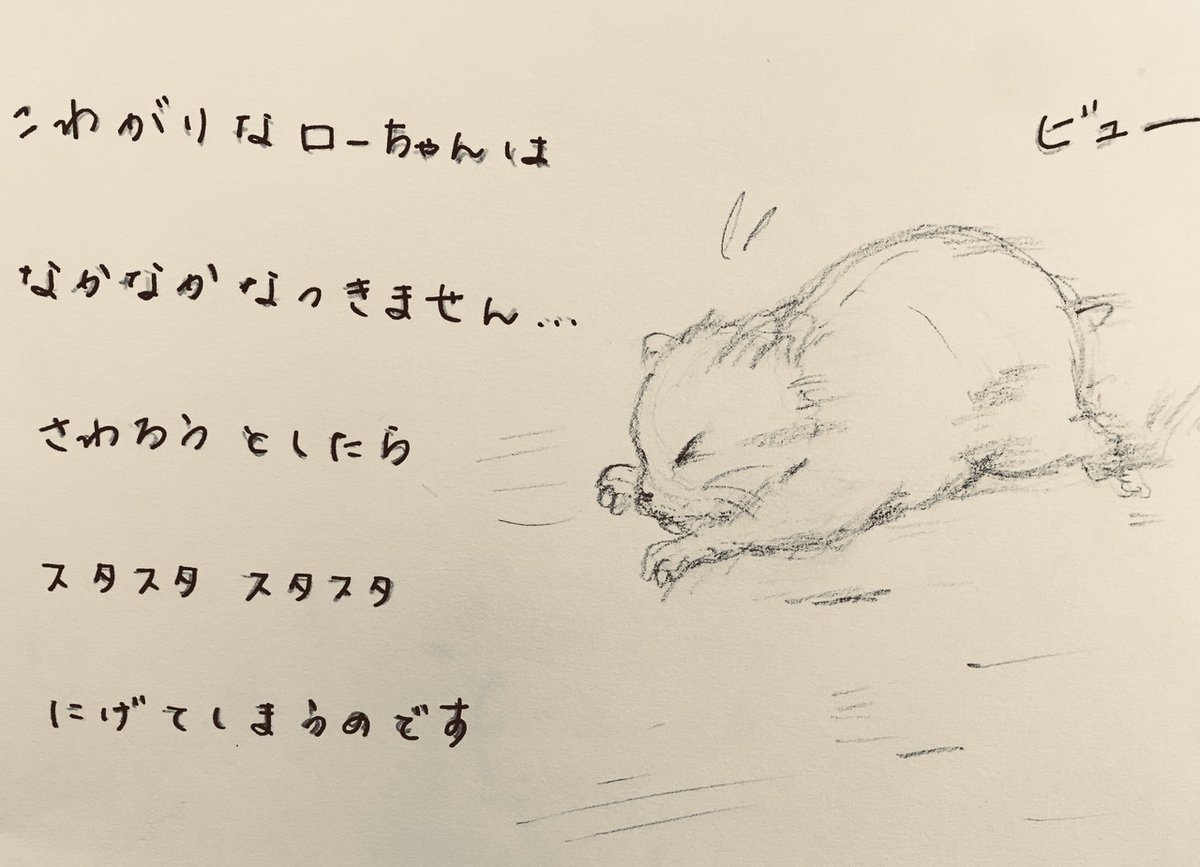 こわがりなローちゃんは
なかなかなつきません…
さわろうとしたら
スタスタ スタスタ
にげてしまうのです
ビュー